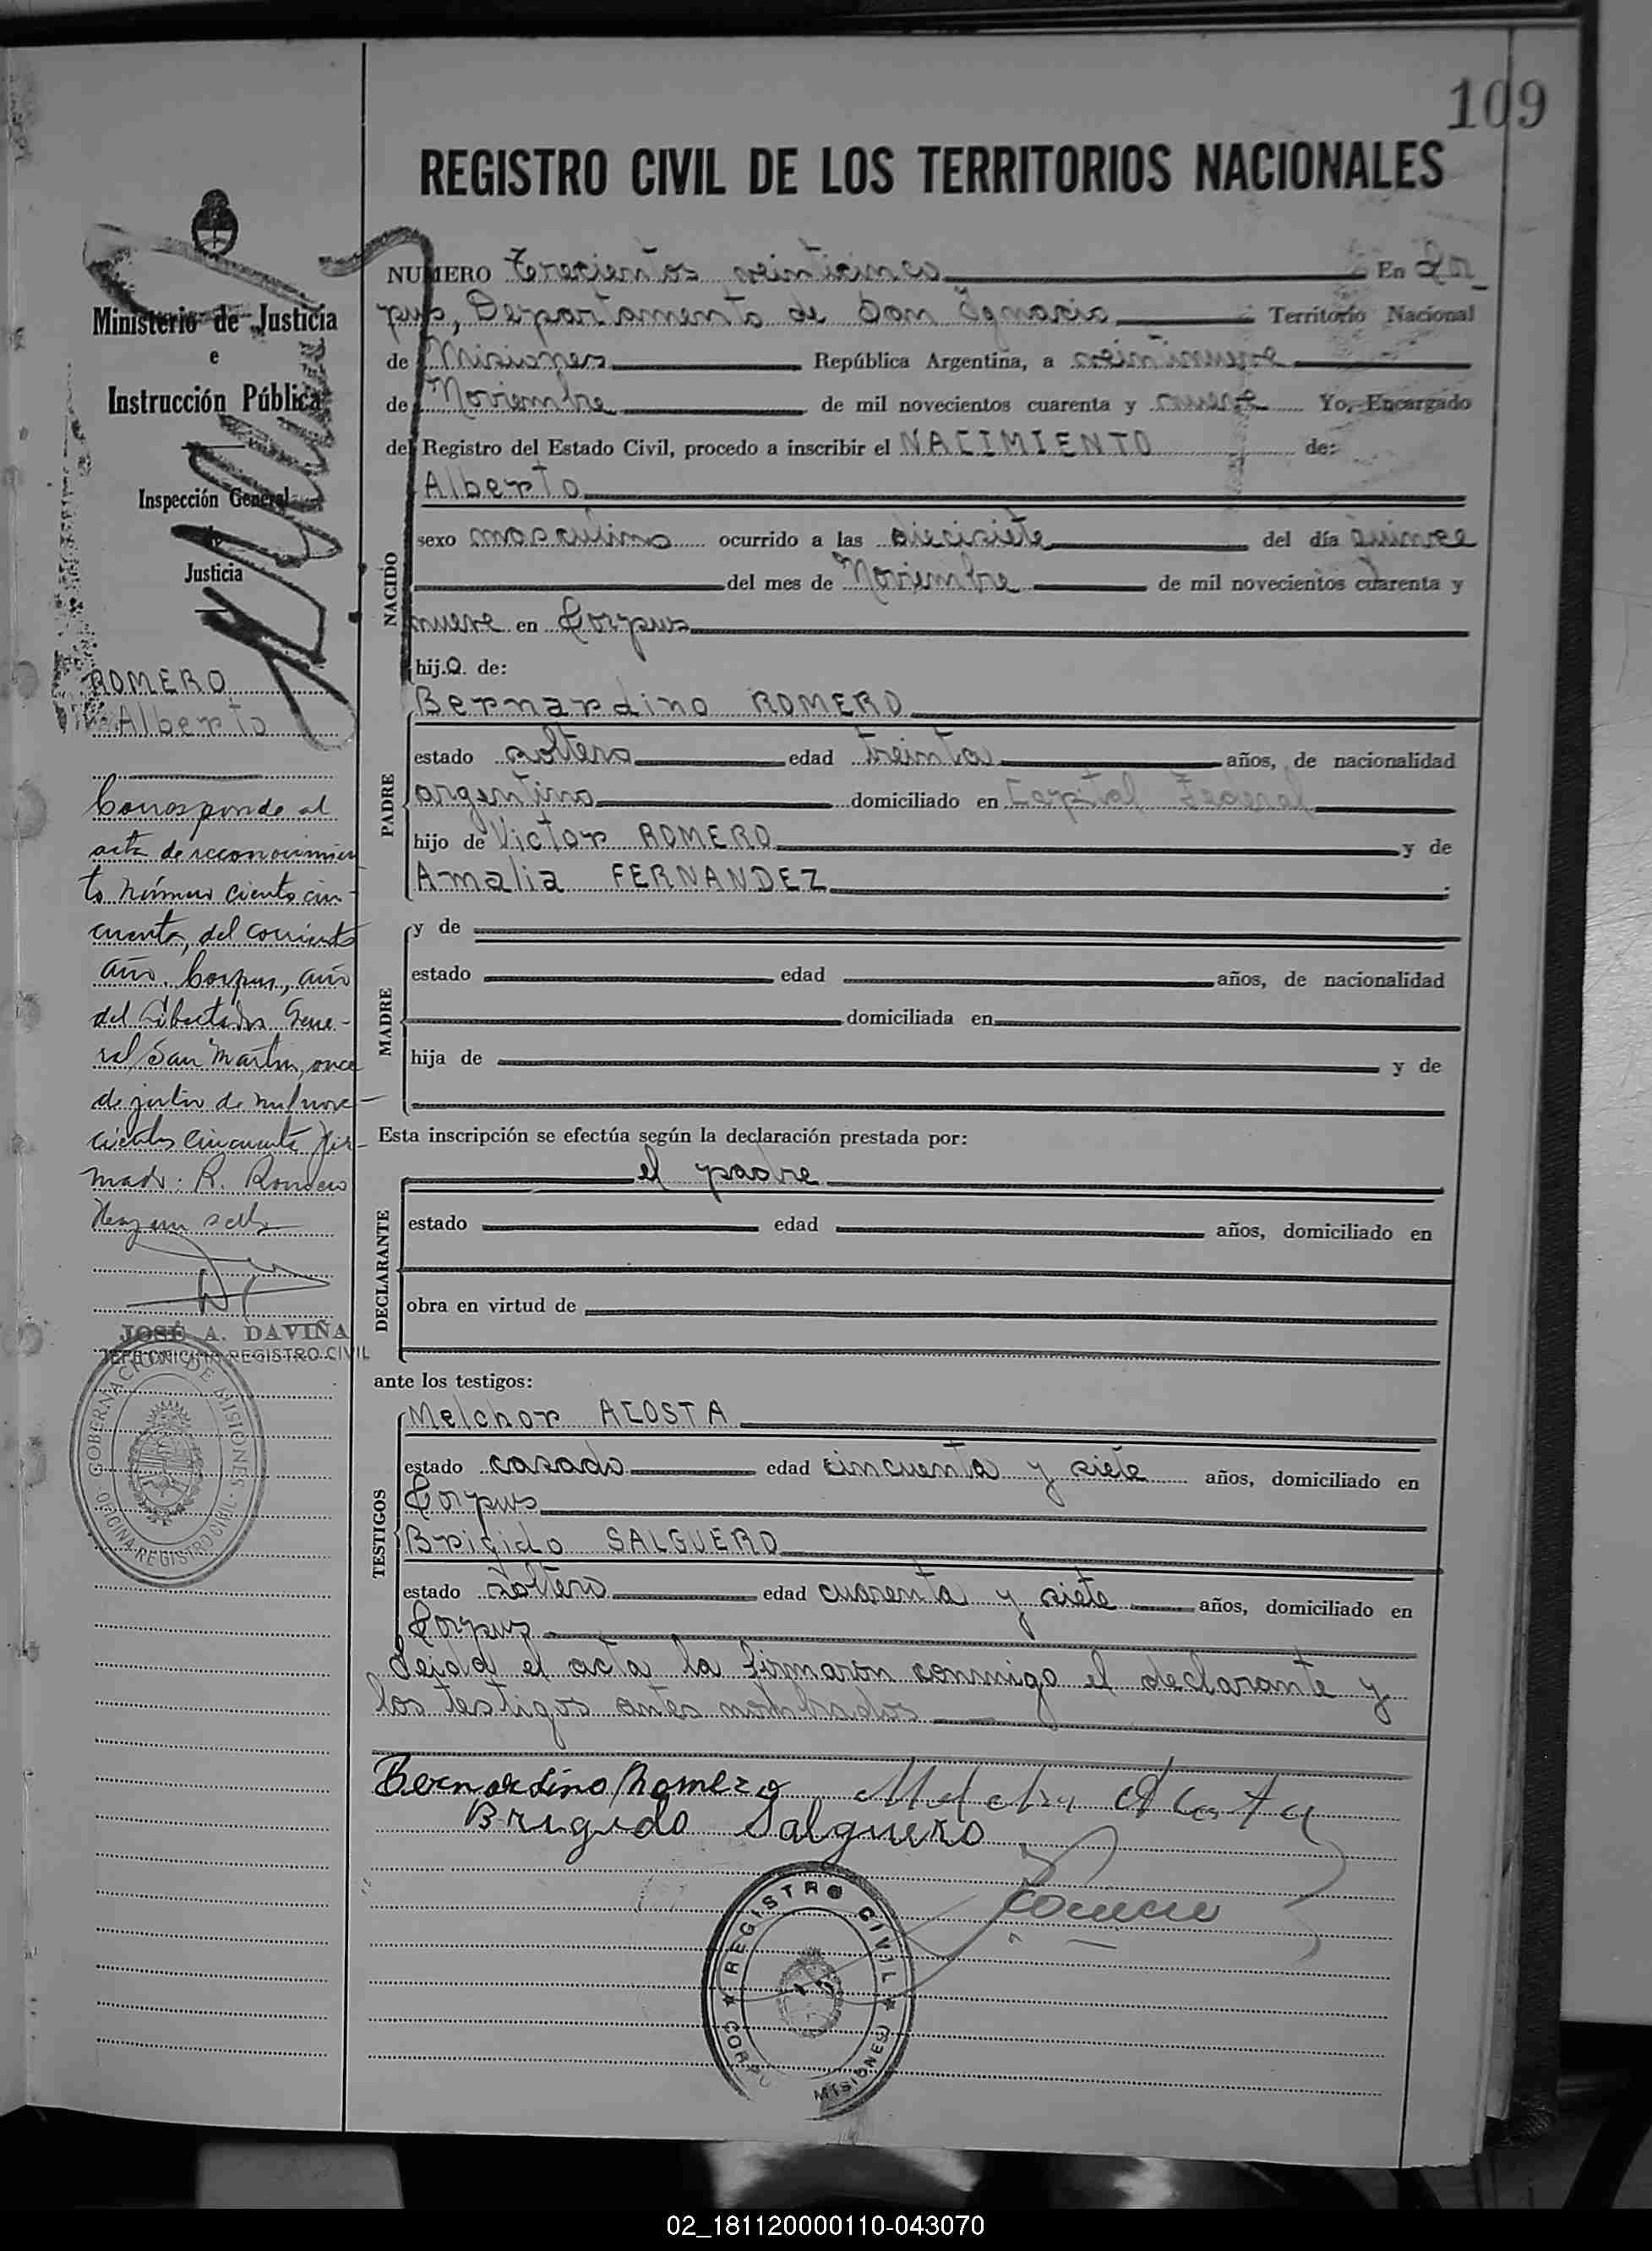 109
REGISTRO CIVIL DE LOS TERRITORIOS NACIONALES
Ministerio de Justicia
e
Instrucción Pública
Inspección General
de
Justicia
ROMERO
Alberto
Corresponde al
acta de reconocimien
to número ciento cin-
cuenta, del corriente
año. Corpus, año
del Libertador Gene-
ral San Martin, once
de julio de mil nove-
cientos cincuenta. Fir-
mado: R. Romero
Hay un sello
JOSÉ A. DAVIÑA
JEFE OFICINA REGISTRO CIVIL
GOBERNACION DE MISIONES - OFICINA REGISTRO CIVIL -
NUMERO Trecientos veinticinco En Cor
pus, Departamento de San Ignacio Territorio Nacional
de Misiones República Argentina, a veintinueve
de Noviembre de mil novecientos cuarenta y nueve Yo, Encargado
del Registro del Estado Civil, procedo a inscribir el NACIMIENTO de:
NACIDO
Alberto
sexo masculino ocurrido a las diecisiete del día quince
del mes de Noviembre de mil novecientos cuarenta y
nueve en Corpus
hij.o. de:
PADRE
Bernardino ROMERO
estado soltero edad treinta años, de nacionalidad
argentino domiciliado en Capital Federal
hijo de Victor ROMERO y de
Amalia FERNANDEZ
MADRE
y de
estado edad años, de nacionalidad
domiciliada en
hija de y de
Esta inscripción se efectúa según la declaración prestada por:
DECLARANTE
el padre
estado edad años, domiciliado en
obra en virtud de
ante los testigos:
TESTIGOS
Melchor ACOSTA
estado casado edad cincuenta y siete años, domiciliado en
Corpus
Brigido SALGUERO
estado soltero edad cuarenta y siete años, domiciliado en
Corpus
Leida el acta la firmaron conmigo el declarante y
los testigos antes nombrados
Bernardino Romero Melchor Acosta
Brigido Salguero
REGISTRO CIVIL ★ CORPUS MISIONES ★
02_181120000110-043070